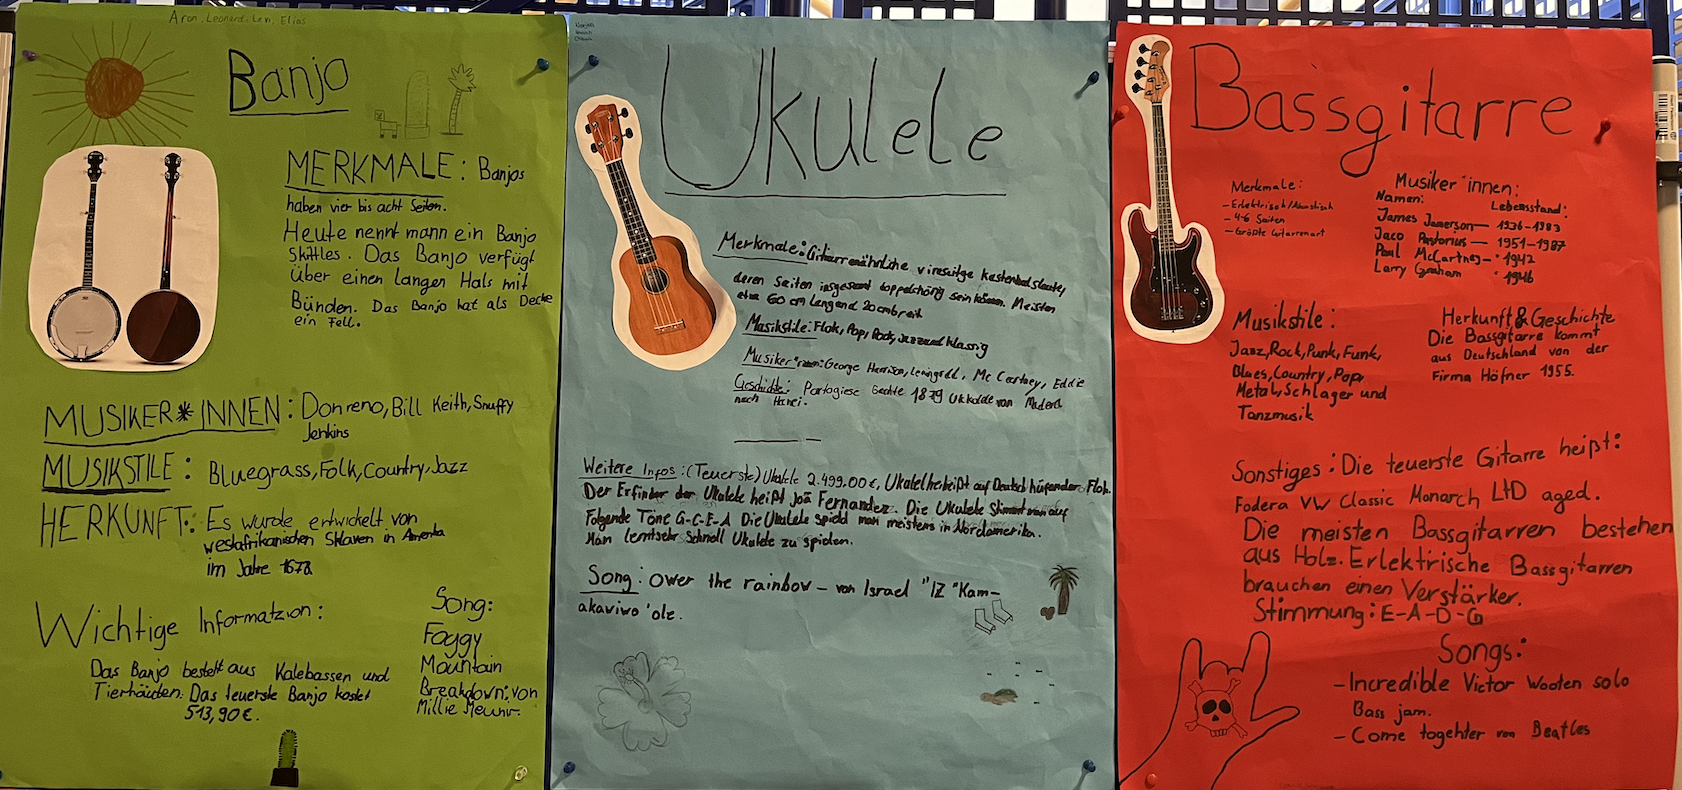 Aron, Leonard, Levi, Elias
Banjo
MERKMALE: Banjos
haben vier bis acht Seiten.
Heute nennt mann ein Banjo
Skittles. Das Banjo verfügt
über einen langen Hals mit
Bünden. Das Banjo hat als Decke
ein Fell.
MUSIKER*INNEN: Don reno, Bill Keith, Snuffy
Jenkins
MUSIKSTILE: Bluegrass, Folk, Country, Jazz
HERKUNFT: Es wurde entwickelt von
westafrikanischen Sklaven in Amerika
im Jahre 1678
Wichtige Informatzion:
Das Banjo besteht aus Kalebassen und
Tierhäuten. Das teuerste Banjo kostet
513,90€.
Song:
Foggy
Mountain
Breakdown: von
Millie Meunir.
Ukulele
Merkmale: Gitarrenähnliche
deren Seiten insgesamt doppelchörig sein können. Meisten
etwa 60 cm Leng und 20cm breit
Musikstile: Flok, Pop, Rock, Jazz und klassig
Musiker*innen: George Harrison, Mc Cartney, Eddie
Geschichte: Portogiese 1879 Ukulele von Madera
nach
Weitere Infos: (Teuerste) Ukulele 2.499,00€, Ukulele heißt auf Deutsch hüfender Floh.
Der Erfinder der Ukulele heißt joã Fernandez. Die Ukulele Stimmt man auf
Folgende Töne G-C-E-A Die Ukulele spield man meistens in Nordamerika.
Man lernt sehr Schnell Ukulele zu spielen.
Song: Ower the rainbow – von Israel "IZ" Kam-
akawiwo 'ole.
Bassgitarre
Merkmale:
- Erlektrisch/Akustisch
- 4-6 Saiten
- Größte Gitarrenart
Musiker*innen:
Namen: Lebensstand:
James Jamerson — 1936-1983
Jaco Pastorius — 1951-1987
Paul McCartney — *1942
Larry Graham *1946
Musikstile:
Jazz, Rock, Punk, Funk,
Blues, Country, Pop,
Metal, Schlager und
Tanzmusik
Herkunft & Geschichte
Die Bassgitarre kommt
aus Deutschland von der
Firma Höfner 1955.
Sonstiges: Die teuerste Gitarre heißt:
Fodera VW Classic Monarch LTD aged.
Die meisten Bassgitarren bestehen
aus Holz. Erlektrische Bassgitarren
brauchen einen Verstärker.
Stimmung: E-A-D-G
Songs:
- Incredible Victor Wooten solo
Bass jam.
- Come togehter von Beatles